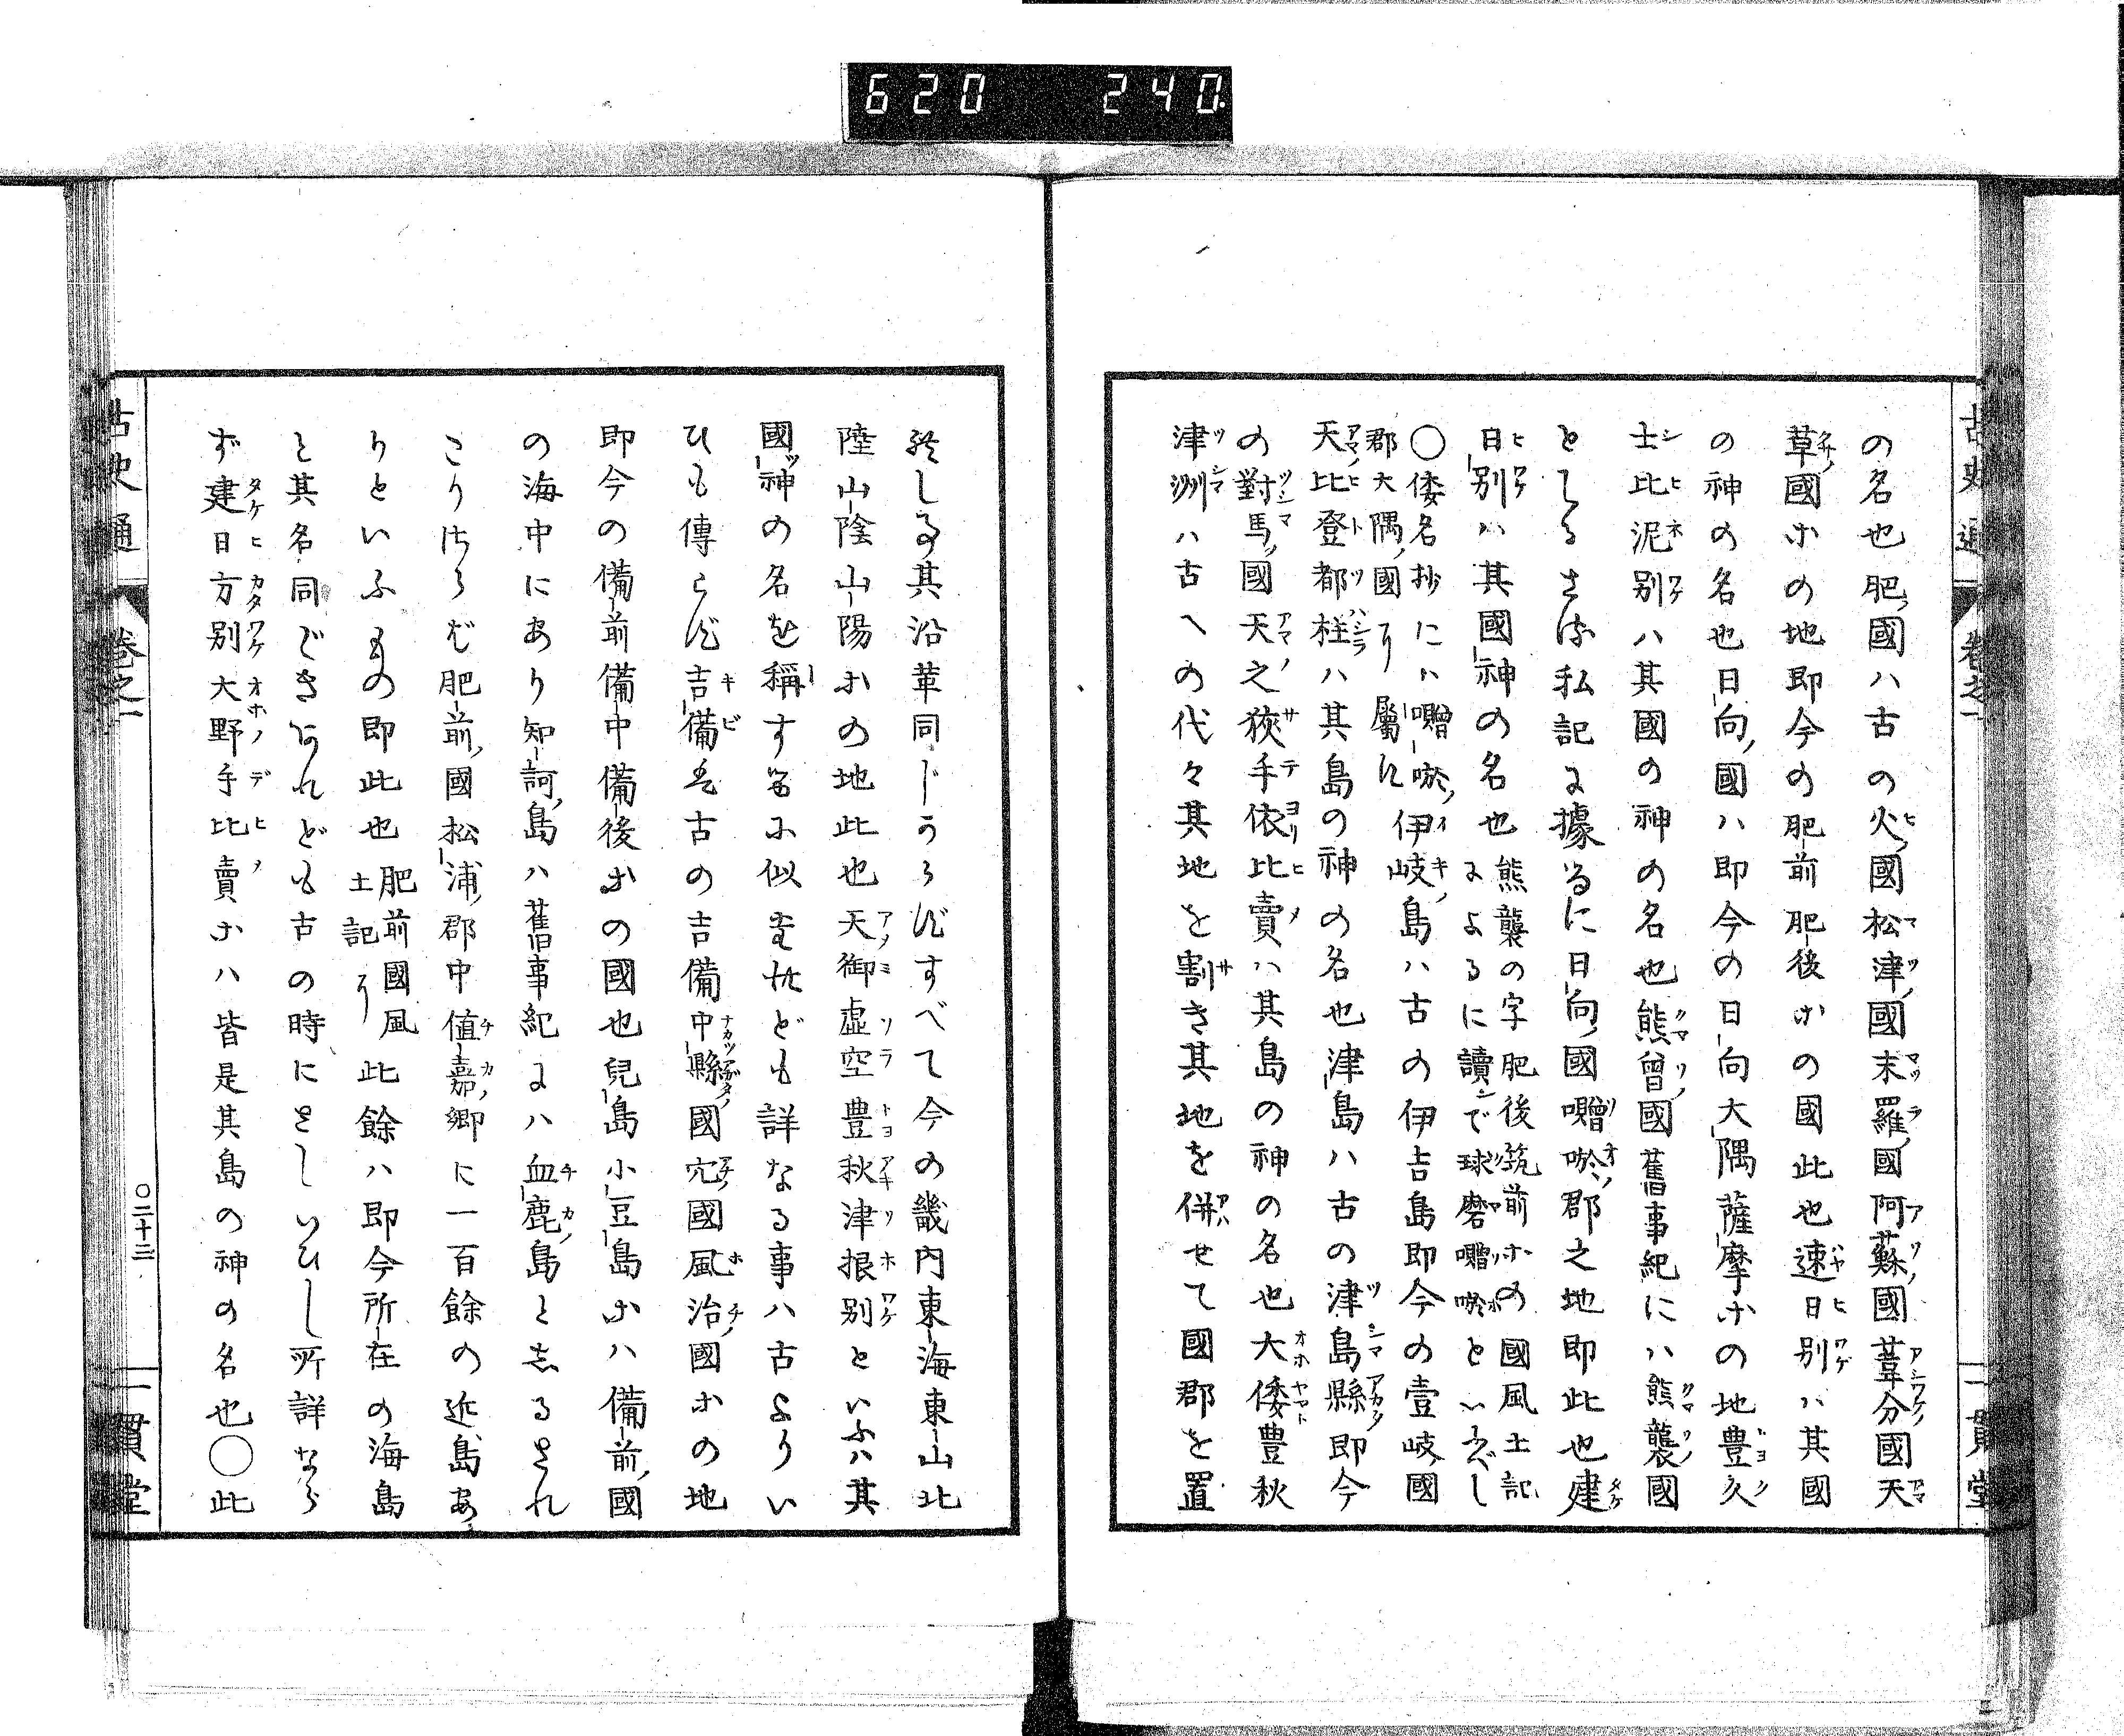 620 240
古史通 巻之一 一貫堂
の名也肥國ハ古の火國松津國末羅國阿蘇國葦分國天
草國ホの地即今の肥前肥後ホの國此也速日別ハ其國
の神の名也日向國ハ即今の日向大隅薩摩ホの地豊久
士比泥別ハ其國の神の名也熊曽國舊事紀にハ熊襲國
としるさ 私記に據るに日向國囎唹郡之地即此也建
日別ハ其國神の名也 熊襲の字肥後筑前ホの國風土記
によるに讀で球磨囎唹といふべし
○倭名抄にハ囎唹
郡大隅國に屬す 伊岐島ハ古の伊吉島即今の壹岐國
天比登都柱ハ其島の神の名也津島ハ古の津島縣即今
の對馬國天之狹手依比賣ハ其島の神の名也大倭豊秋
津洲ハ古への代々其地を割き其地を併せて國郡を置
しる 其沿革同じうらずすべて今の畿内東海東山北
陸山陰山陽ホの地此也天御虚空豊秋津根別といふハ其
國神の名を稱するに似 れども詳なる事ハ古よりい
ひも傳らず吉備 古の吉備中縣國穴國風治國ホの地
即今の備前備中備後ホの國也兒島小豆島ホハ備前國
の海中にあり知訶島ハ舊事紀にハ血鹿島としるされ
たり 肥前國松浦郡中値嘉郷に一百餘の近島あ
りといふもの即此也 肥前國風
土記 此餘ハ即今所在の海島
と其名同じき れども古の時にさしいひし所詳なら
ず建日方別大野手比賣ホハ皆是其島の神の名也○此
古史通 巻之一 ○二十三 一貫堂